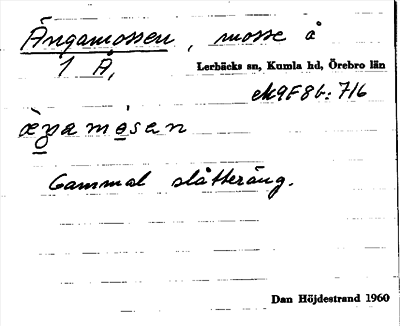 Ängamossen, mosse å
1 Å,
Lerbäcks sn, Kumla hd, Örebro län
M9F8b:716
Gammal slåtteräng.
Dan Höjdestrand 1960